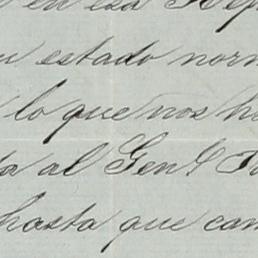 en esa Rep
estado norm
lo que nos h
al Gen!
hasta que cam